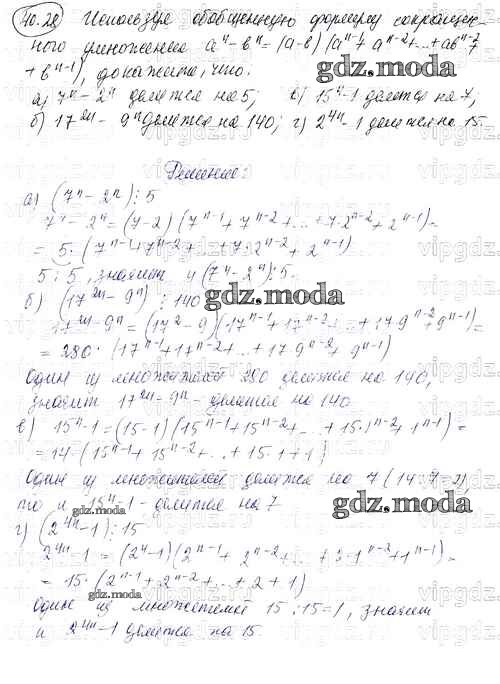 40.28 Используя обобщенную формулу сокращен-
ного умножения aⁿ-вⁿ=(a-в)(aⁿ⁻¹+aⁿ⁻²+...+aвⁿ⁻²+
+вⁿ⁻¹), докажите, что:
gdz.moda
а) 7ⁿ-2ⁿ делится на 5; в) 15ⁿ-1 делится на 7;
б) 17²ⁿ-9ⁿ делится на 140; г) 2⁴ⁿ-1 делится на 15.
Решение:
а) (7ⁿ-2ⁿ)⋮5
7ⁿ-2ⁿ=(7-2)(7ⁿ⁻¹+7ⁿ⁻²+...+7·2ⁿ⁻²+2ⁿ⁻¹)=
=5·(7ⁿ⁻¹+7ⁿ⁻²+...+7·2ⁿ⁻²+2ⁿ⁻¹)
5⋮5, значит и (7ⁿ-2ⁿ)⋮5.
б) (17²ⁿ-9ⁿ)⋮140
gdz.moda
17²ⁿ-9ⁿ=(17²-9)(17ⁿ⁻¹+17ⁿ⁻²+...+17·9ⁿ⁻²+9ⁿ⁻¹)=
=280·(17ⁿ⁻¹+17ⁿ⁻²+...+17·9ⁿ⁻²+9ⁿ⁻¹)
Один из множителей 280 делится на 140,
значит 17²ⁿ-9ⁿ - делится на 140.
в) 15ⁿ-1=(15-1)(15ⁿ⁻¹+15ⁿ⁻²+...+15·1ⁿ⁻²+1ⁿ⁻¹)=
=14·(15ⁿ⁻¹+15ⁿ⁻²+...+15·1+1)
Один из множителей делится на 7 (14:7=2)
то и 15ⁿ-1 - делится на 7
gdz.moda
г) (2⁴ⁿ-1)⋮15
2⁴ⁿ-1=(2⁴-1)(2ⁿ⁻¹+2ⁿ⁻²+...+2·1ⁿ⁻²+1ⁿ⁻¹)=
=15·(2ⁿ⁻¹+2ⁿ⁻²+...+2+1)
gdz.moda
Один из множителей 15:15=1, значит
и 2⁴ⁿ-1 делится на 15.